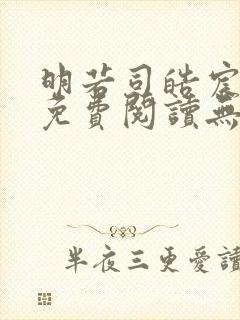 明若司皓宸
免費閱讀無
半夜三更愛讀